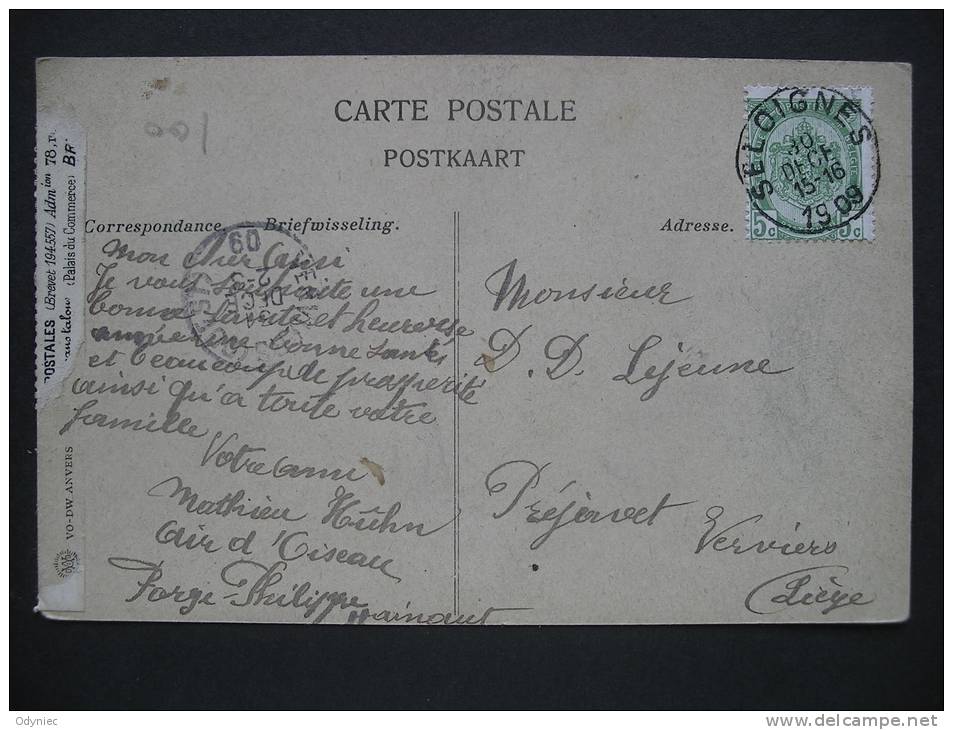 CARTE POSTALE
POSTKAART
Correspondance. Briefwisseling.
Adresse.
SELOIGNES
10
DECE
15-16
1909
5c 5c
POSTALES (Brevet 194.557) Admion 78, r
(Palais du Commerce) BR
VO-DW. ANVERS
09
DECE
Mon cher Ami
Je vous souhaite une
bonne sainte et heureuse
année une bonne santé
et beaucoup de prospérité
ainsi qu'à toute votre
famille
Votre ami
Mathieu Hühn
Air d'Oiseau
Forge-Philippe
Hainaut
Monsieur
D. D. Lejeune
Préjovet
Verviers
Liège
Odyniec
delcampe.net